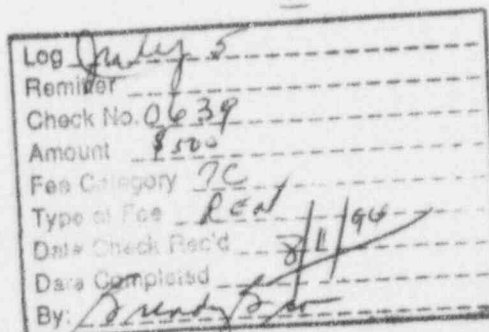 Log July 5
Remitter
Check No. 0639
Amount $500
Fee Category 7C
Type of Fee Ren
Date Check Rec'd 8/11/94
Date Completed
By: